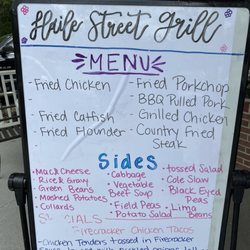 Haile Street Grill
MENU
- Fried Chicken
- Fried Porkchop
BBQ Pulled Pork
- Fried Catfish
- Grilled Chicken
- Fried Flounder
- Country Fried
Steak
Sides
• Mac & Cheese
• Rice & Gravy
• Green Beans
• Mashed Potatoes
• Collards
• Cabbage
• Vegetable
Beef Soup
• Field Peas
• Potato Salad
• tossed Salad
• Cole Slaw
• Black Eyed
Peas
• Lima
Beans
SPECIALS
Firecracker Chicken Tacos
- Chicken Tenders tossed in Firecracker